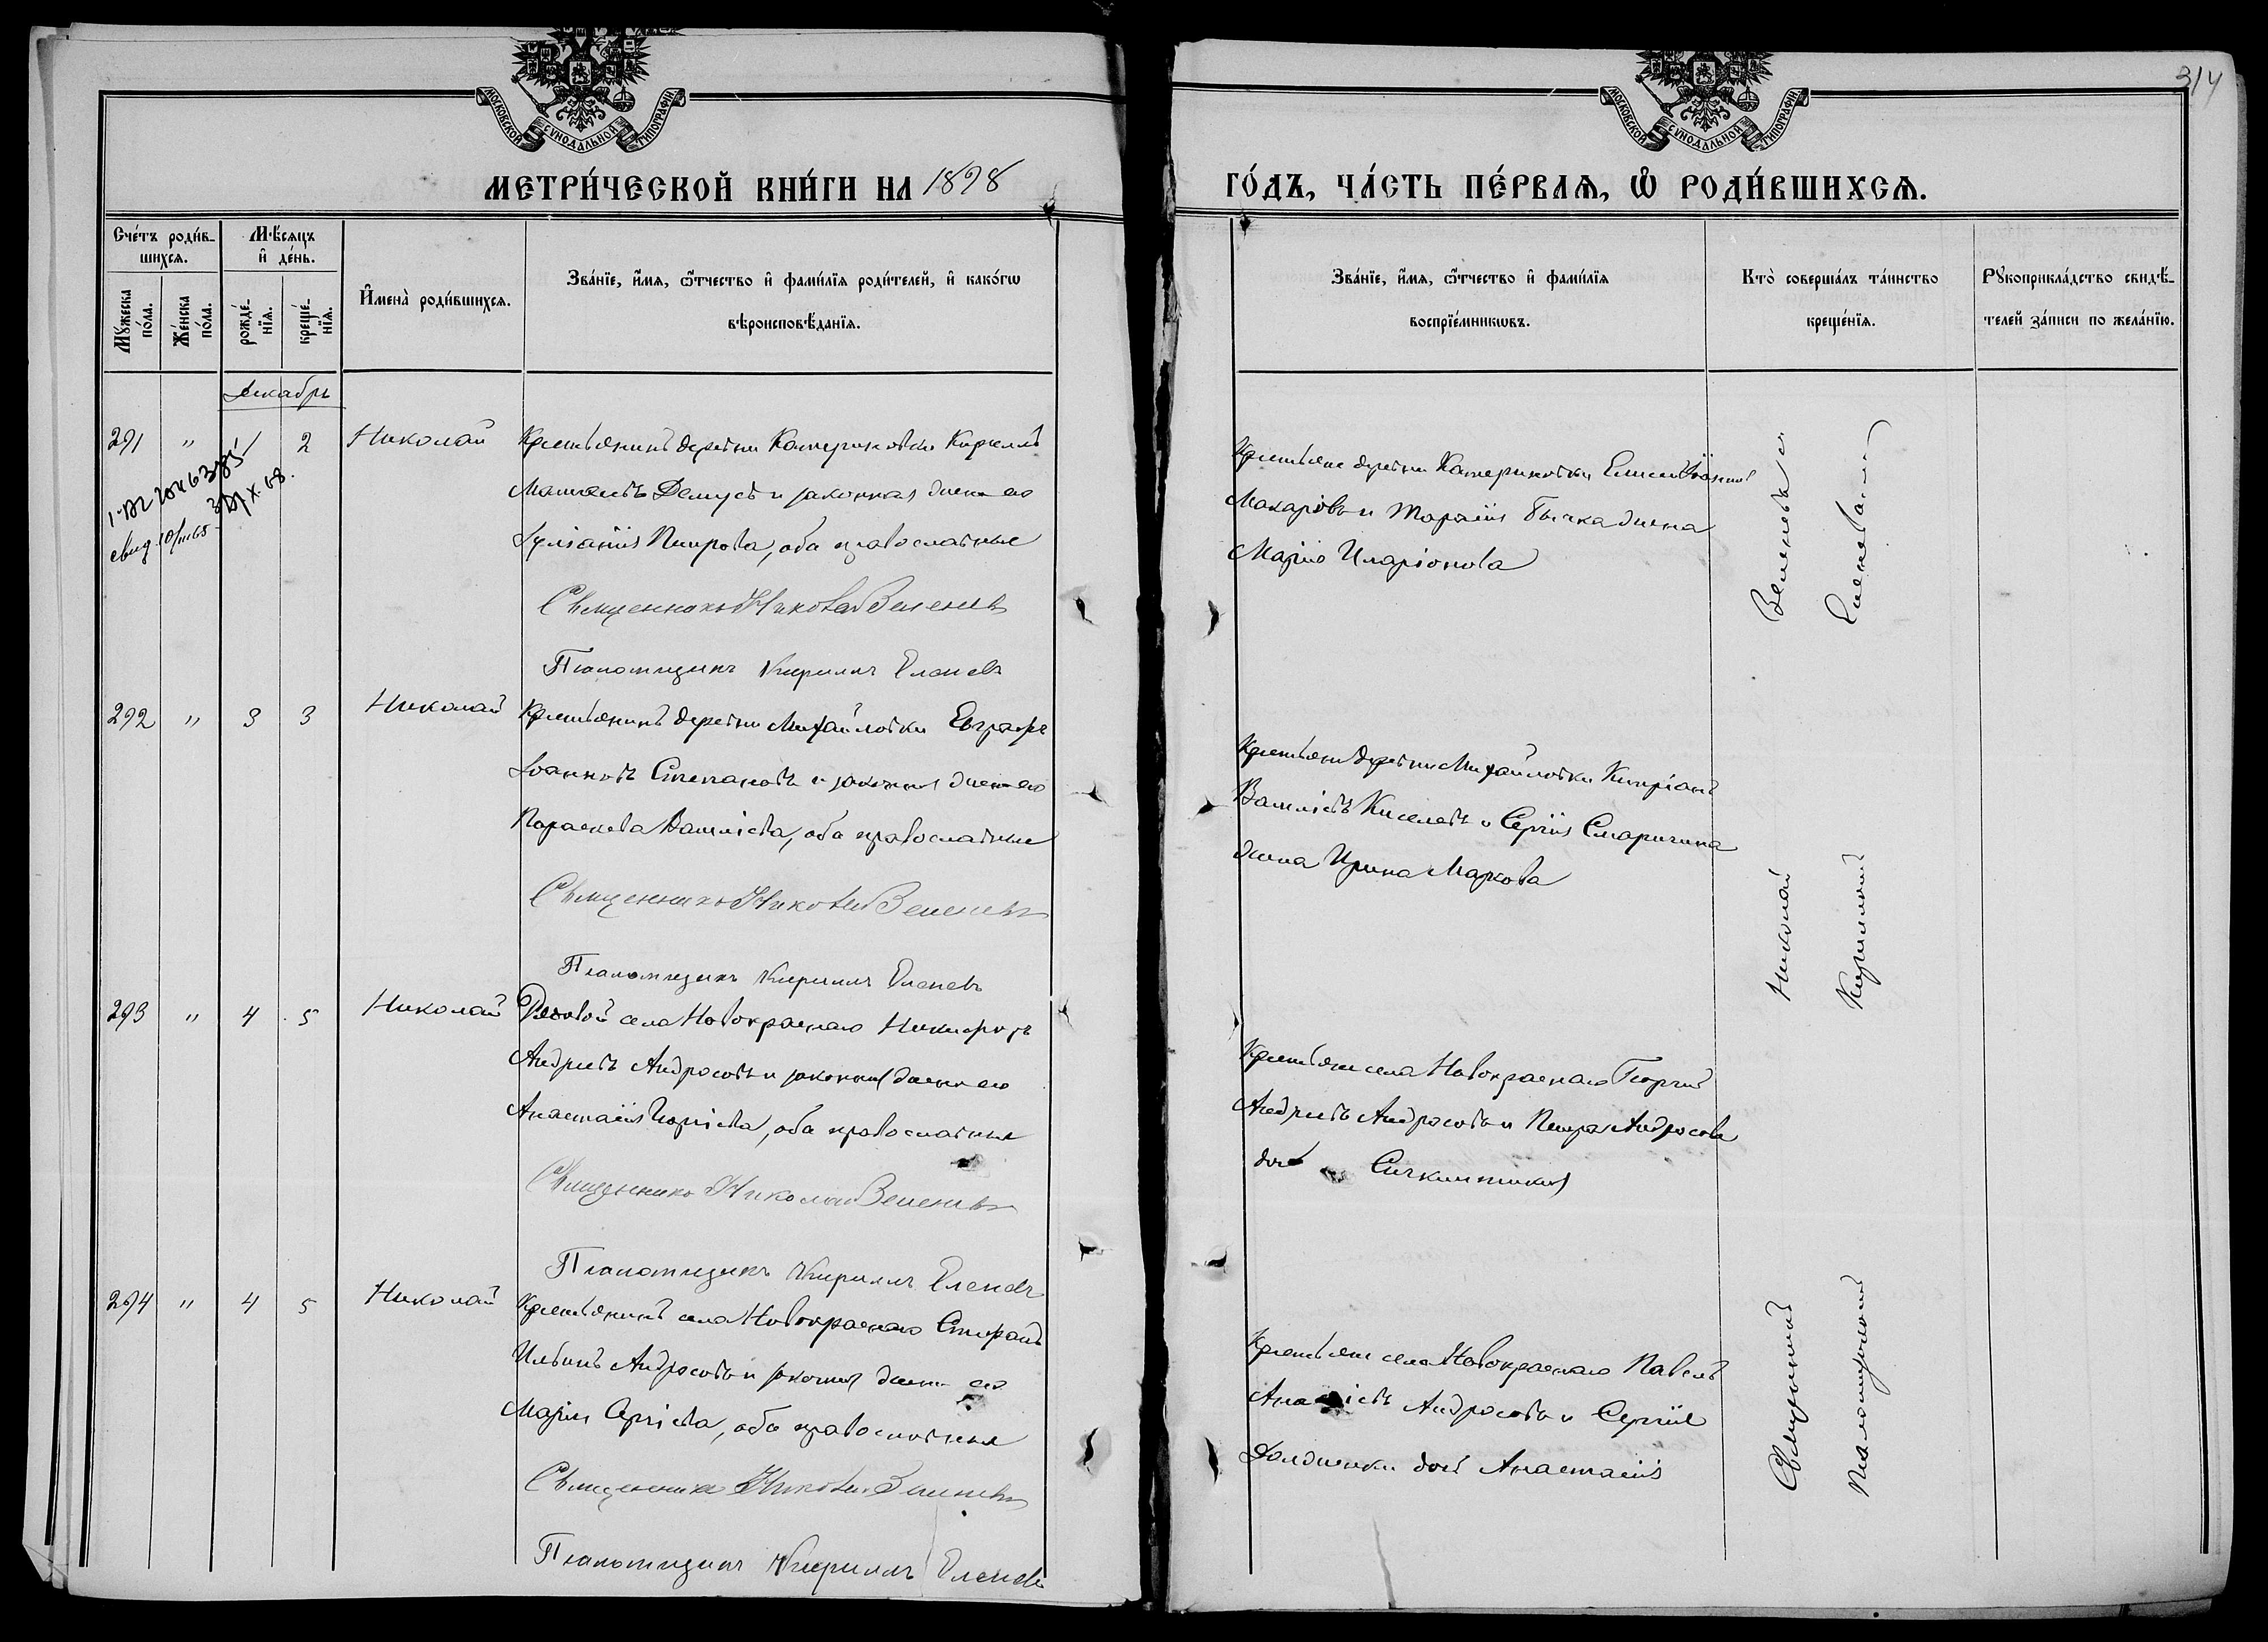 МОСКОВСКОЙ СѴНОДАЛЬНОЙ ТИПОГРАФІИ
МОСКОВСКОЙ СѴНОДАЛЬНОЙ ТИПОГРАФІИ
314
МЕТРИ́ЧЕСКОЙ КНИ́ГИ НА 1898
ГО́ДЪ, ЧА́СТЬ ПЕ́РВАѦ, Ѡ РОДИ́ВШИХСѦ.
Сче́тъ роди́в-
шихсѧ.
Мѣсѧцъ
и҆ де́нь.
Мꙋ́жеска по́ла.
Же́нска по́ла.
рожде́-нїѧ.
креще́-нїѧ.
И҆мена̀ роди́вшихсѧ.
Зва́нїе, и҆́мѧ, ѻ҆́тчество и҆ фами́лїѧ роди́телей, и҆ како́гѡ
вѣроисповѣ́данїѧ.
Зва́нїе, и҆́мѧ, ѻ҆́тчество и҆ фами́лїѧ
воспрїе́мникѡвъ.
Кто̀ соверша́лъ та́инство
креще́нїѧ.
Рꙋкоприкла́дство свидѣ́-
телей за́писи по жела́нїю.
Декабрь
291 " 1 2 Николай
Крестьянинъ деревни Катериновки Кириллъ
Демусъ и законная жена его
Іуліанія Петрова, оба православные
Священникъ Николай Веленевъ
Псаломщикъ Кириллъ Еленевъ
Крестьяне деревни Катериновки
Макаровъ и Бычка жена
Марія Иларіонова
292 " 3 3 Николай
Крестьянинъ деревни Михайловки Евграфъ
Іоанновъ Степановъ и законная жена его
Параскева Данилова, оба православные
Священникъ Николай Веленевъ
Псаломщикъ Кириллъ Еленевъ
Крестьяне деревни Михайловки Кипріанъ
Киселевъ и Сергія Смаригина
жена Ирина Маркова
293 " 4 5 Николай
Рядовой села Новокраснаго Никифоръ
Андреевъ Андросовъ и законная жена его
Анастасія Георгіева, оба православные
Священникъ Николай Веленевъ
Псаломщикъ Кириллъ Еленевъ
Крестьяне села Новокраснаго Георгій
Андреевъ Андросовъ и Петра Андросова
294 " 4 5 Николай
Крестьянинъ села Новокраснаго Стефанъ
Ильинъ Андросовъ и законная жена его
Марія Сергіева, оба православные
Священникъ Николай Веленевъ
Псаломщикъ Кириллъ Еленевъ
Крестьяне села Новокраснаго Павелъ
Андросовъ и Сергія
дочь Анастасія
Священникъ Николай Веленевъ
Псаломщикъ Кириллъ Еленевъ